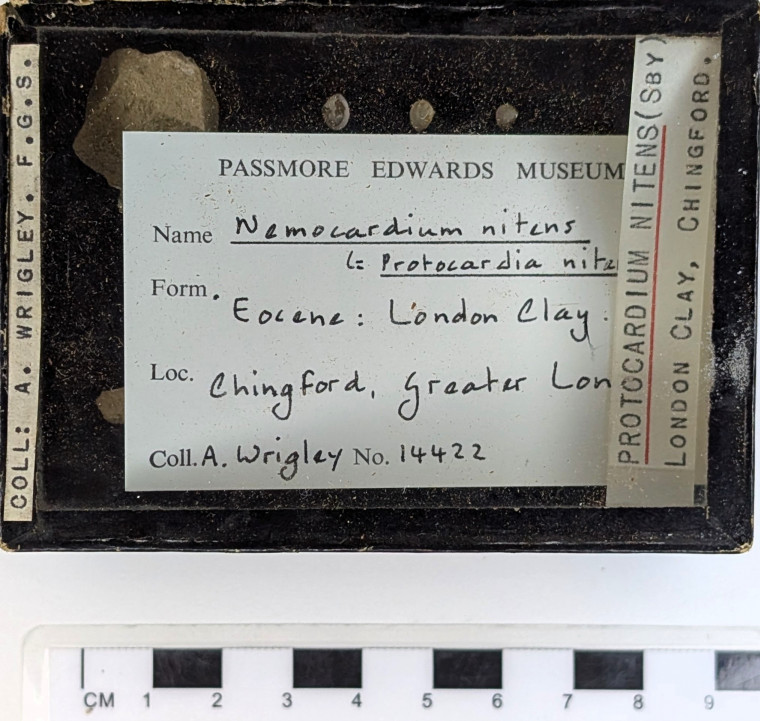 COLL: A. WRIGLEY. F.G.S.
PASSMORE EDWARDS MUSEUM
Name Nemocardium nitens
(= Protocardia nite
Form. Eocene: London Clay.
Loc. Chingford, Greater Lon
Coll. A. Wrigley No. 14422
PROTOCARDIUM NITENS(SBY)
LONDON CLAY, CHINGFORD.
CM 1 2 3 4 5 6 7 8 9